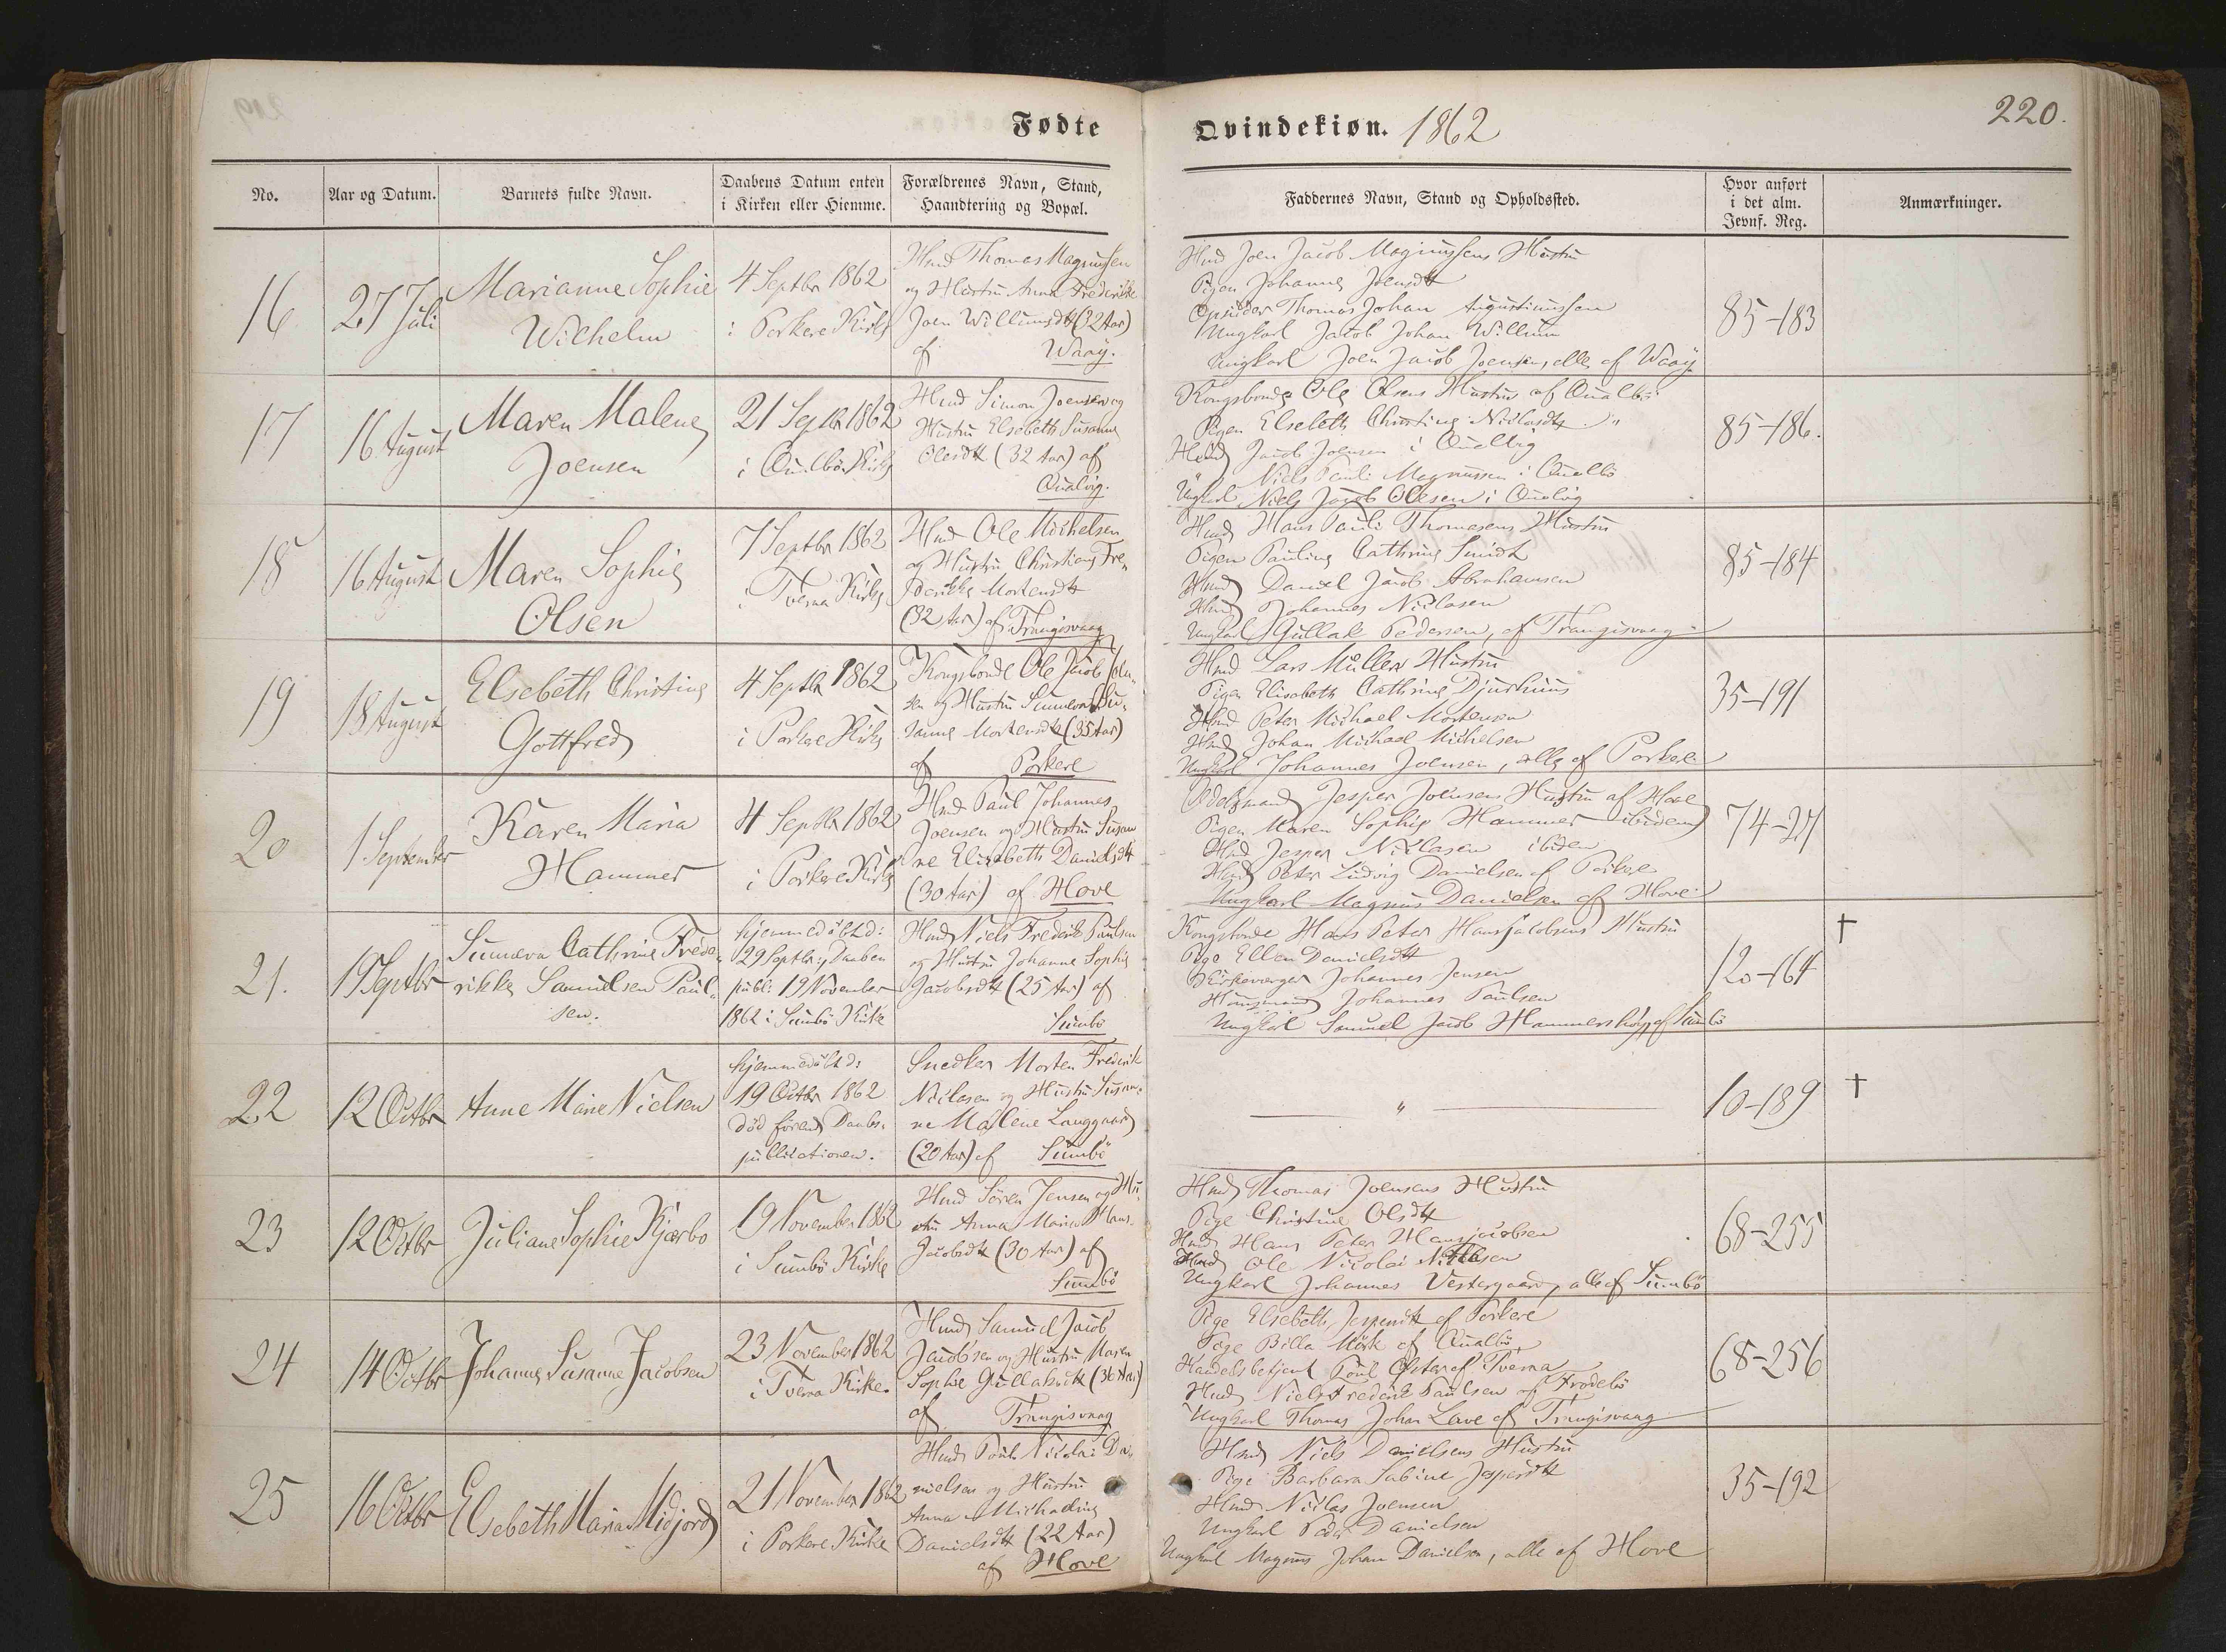 Fødte
Qvindekiøn. 1862
220.
No.
Aar og Datum.
Barnets fulde Navn.
Daabens Datum enten
i Kirken eller Hiemme.
Forældrenes Navn, Stand,
Haandtering og Bopæl.
Faddernes Navn, Stand og Opholdssted.
Hvor anført
i det alm.
Jevnf. Reg.
Anmærkninger.
16
27 Juli
Marianne Sophie
Wilhelm
4 Septbr 1862
i Porkere Kirke
Hmd Thomas Magnussen
og Hustru Anna Frederikke
Joen Willumsdtt (32 Aar)
af Waag.
Hmd Joen Jacob Magnussens Hustru
Pigen Johanne Joensdtt
Opsidder Thomas Johan Augustinussen
Ungkarl Jacob Johan Willum
Ungkarl Joen Jacob Joensen, alle af Waag
85-183
17
16 August
Maren Malene
Joensen
21 Septbr 1862
i Qualbö Kirke
Hmd Simon Joensen og
Hustru Elsebeth Susanne
Olesdtt (32 Aar) af
Qualvig.
Kongsbonde Ole Olsens Hustru af Qualbö
Pigen Elsebeth Christine Niclasdtt "
Hmd Jacob Joensen i Qualvig
Niels Pauli Magnussen i Qualbö
Ungkarl Niels Jacob Olesen i Qualvig
85-186.
18
16 August
Maren Sophie
Olsen
7 Septbr 1862
i Tveraa Kirke
Hmd Ole Michelsen
og Hustru Christiane Fre-
derikke Mortensdtt
(32 Aar) af Trangisvaag
Hmd Hans Pauli Thomasens Hustru
Pigen Pauline Cathrine Smidt
Hmd Daniel Jacob Abrahamsen
Hmd Johannes Niclasen
Ungkarl Gullak Pedersen, af Trangisvaag
85-184
19
18 August
Elsebeth Christine
Gottfred
4 Septbr 1862
i Porkere Kirke
Kongsbonde Ole Jacob Joen-
sen og Hustru Sunneva Su-
sanne Mortensdtt (35 Aar)
af Porkere
Hmd Lars Müllers Hustru
Pigen Elisabeth Cathrine Djurhuus
Hmd Peter Michael Mortensen
Hmd Johan Michael Michelsen
Ungkarl Johannes Joensen, alle af Porkere
35-191
20
1 September
Karen Maria
Hammer
4 Septbr 1862
i Porkere Kirke
Hmd Paul Johannes
Joensen og Hustru Susan
ne Elisabeth Danielsdtt
(30 Aar) af Hove
Odelsmand Jesper Joensens Hustru af Hove
Pigen Maren Sophie Hammer ibidem
Hmd Jesper Niclasen ibidem
Hmd Peter Ludvig Danielsen af Porkere
Ungkarl Magnus Danielsen af Hove
74-27
21.
19 Septbr
Sunneva Cathrine Frede-
rikke Samuelsen Paul-
sen.
hjemmedöbt d:
29 Septbr, Daaben
publ: 19 November
1862 i Sumbö Kirke
Hmd Niels Frederik Paulsen
og Hustru Johanne Sophie
Jacobsdtt (25 Aar) af
Sumbö
Kongsbonde Hans Peter Hansjacobsens Hustru
Pige Ellen Danielsdtt
Kirkeværger Johannes Jensen
Huusmand Johannes Paulsen
Ungkarl Samuel Jacob Hammershøj, af Sumbö
120-164
†
22
12 Octbr
Anne Marie Nielsen
hjemmedöbt d:
19 Octbr 1862
död förend Daabs-
publicationen.
Snedker Morten Frederik
Niclasen og Hustru Susan-
ne Malene Langgaard
(20 Aar) af Sumbö
"
10-189
†
23
12 Octbr
Juliane Sophie Kjærbo
19 November 1862
i Sumbö Kirke
Hmd Sören Jensen og Hu-
stru Anna Maria Hans-
Jacobsdtt (30 Aar) af
Sumbö
Hmd Thomas Joensens Hustru
Pige Christine Olsdtt
Hmd Hans Peter Hansjacobsen
Hmd Ole Nicolai Niclasen
Ungkarl Johannes Vestergaard, alle af Sumbö
68-255
24
14 Octbr
Johanne Susanne Jacobsen
23 November 1862
i Tveraa Kirke
Hmd Samuel Jacob
Jacobsen og Hustru Maren
Sophie Gullaksdtt (36 Aar)
af Trangisvaag
Pige Elsebeth Jespersdtt af Porkere
Pige Billa Mörk af Qualbö
Handelsbetjent Poul Öster af Tveraa
Hmd Niels Frederik Paulsen af Frodebö
Ungkarl Thomas Johan Lave af Trangisvaag
68-256
25
16 Octbr
Elsebeth Maria Midjord
21 November 1862
i Porkere Kirke
Hmd Poul Nicolai Da-
nielsen og Hustru
Anna Michaeline
Danielsdtt (22 Aar)
af Hove
Hmd Niels Danielsens Hustru
Pige Barbara Sabine Jespersdtt
Hmd Niclas Joensen
Ungkarl Peder Danielsen
Ungkarl Magnus Johan Danielsen, alle af Hove
35-192